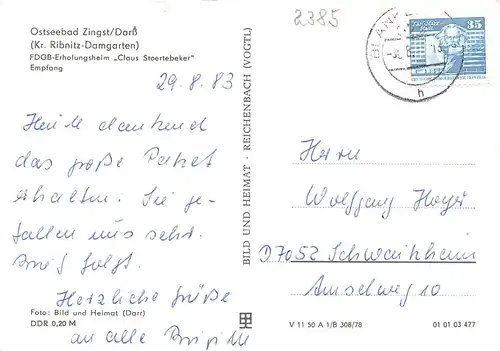 2385
Ostseebad Zingst/Darß
(Kr. Ribnitz-Damgarten)
FDGB-Erholungsheim „Claus Stoertebeker"
Empfang
29.8.83
Heute dankend
das große Paket
erhalten. Sie ge-
fallen uns sehr.
Brief folgt.
Herzliche Grüße
an alle Brigitte
Foto: Bild und Heimat (Darr)
DDR 0,20 M
BILD UND HEIMAT · REICHENBACH (VOGTL)
BLANKE
35
h
Herrn
Wolfgang Hoyer
D7052 Schwaikheim
Amselweg 10
V 11 50 A 1/B 308/78
01 01 03 477